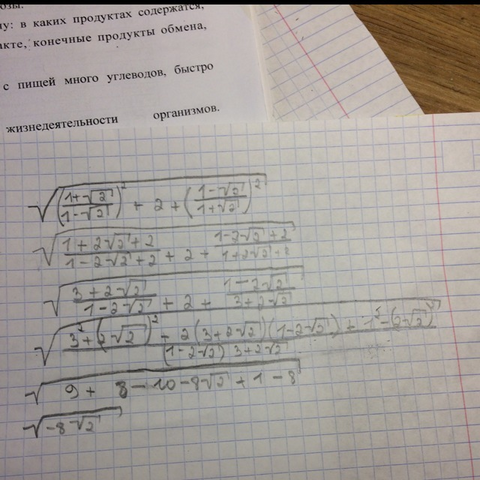 озы.
ну: в каких продуктах содержатся,
акте, конечные продукты обмена,
с пищей много углеводов, быстро
жизнедеятельности организмов.
√((1+√2)/(1-√2))² + 2 + ((1-√2)/(1+√2))²
√(1+2√2+2)/(1-2√2+2) + 2 + (1-2√2+2)/(1+2√2+8)
√(3+2√2)/(1-2√2) + 2 + (1-2√2)/(3+2√2)
√(3²+(2√2)² - 2(3+2√2)(1-2√2) + 1²-(2√2)²)/((1-2√2) 3+2√2)
√9 + 8 - 10 - 8√2 + 1 - 8
√-8√2